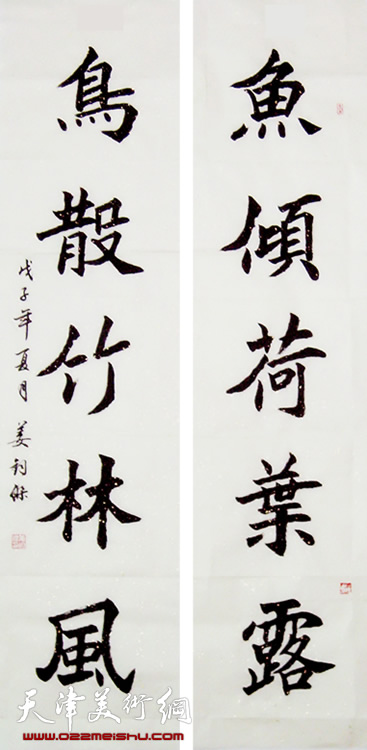 魚傾荷葉露
鳥散竹林風
戊子年夏月 姜钧保
天津美術網
www.022meishu.com